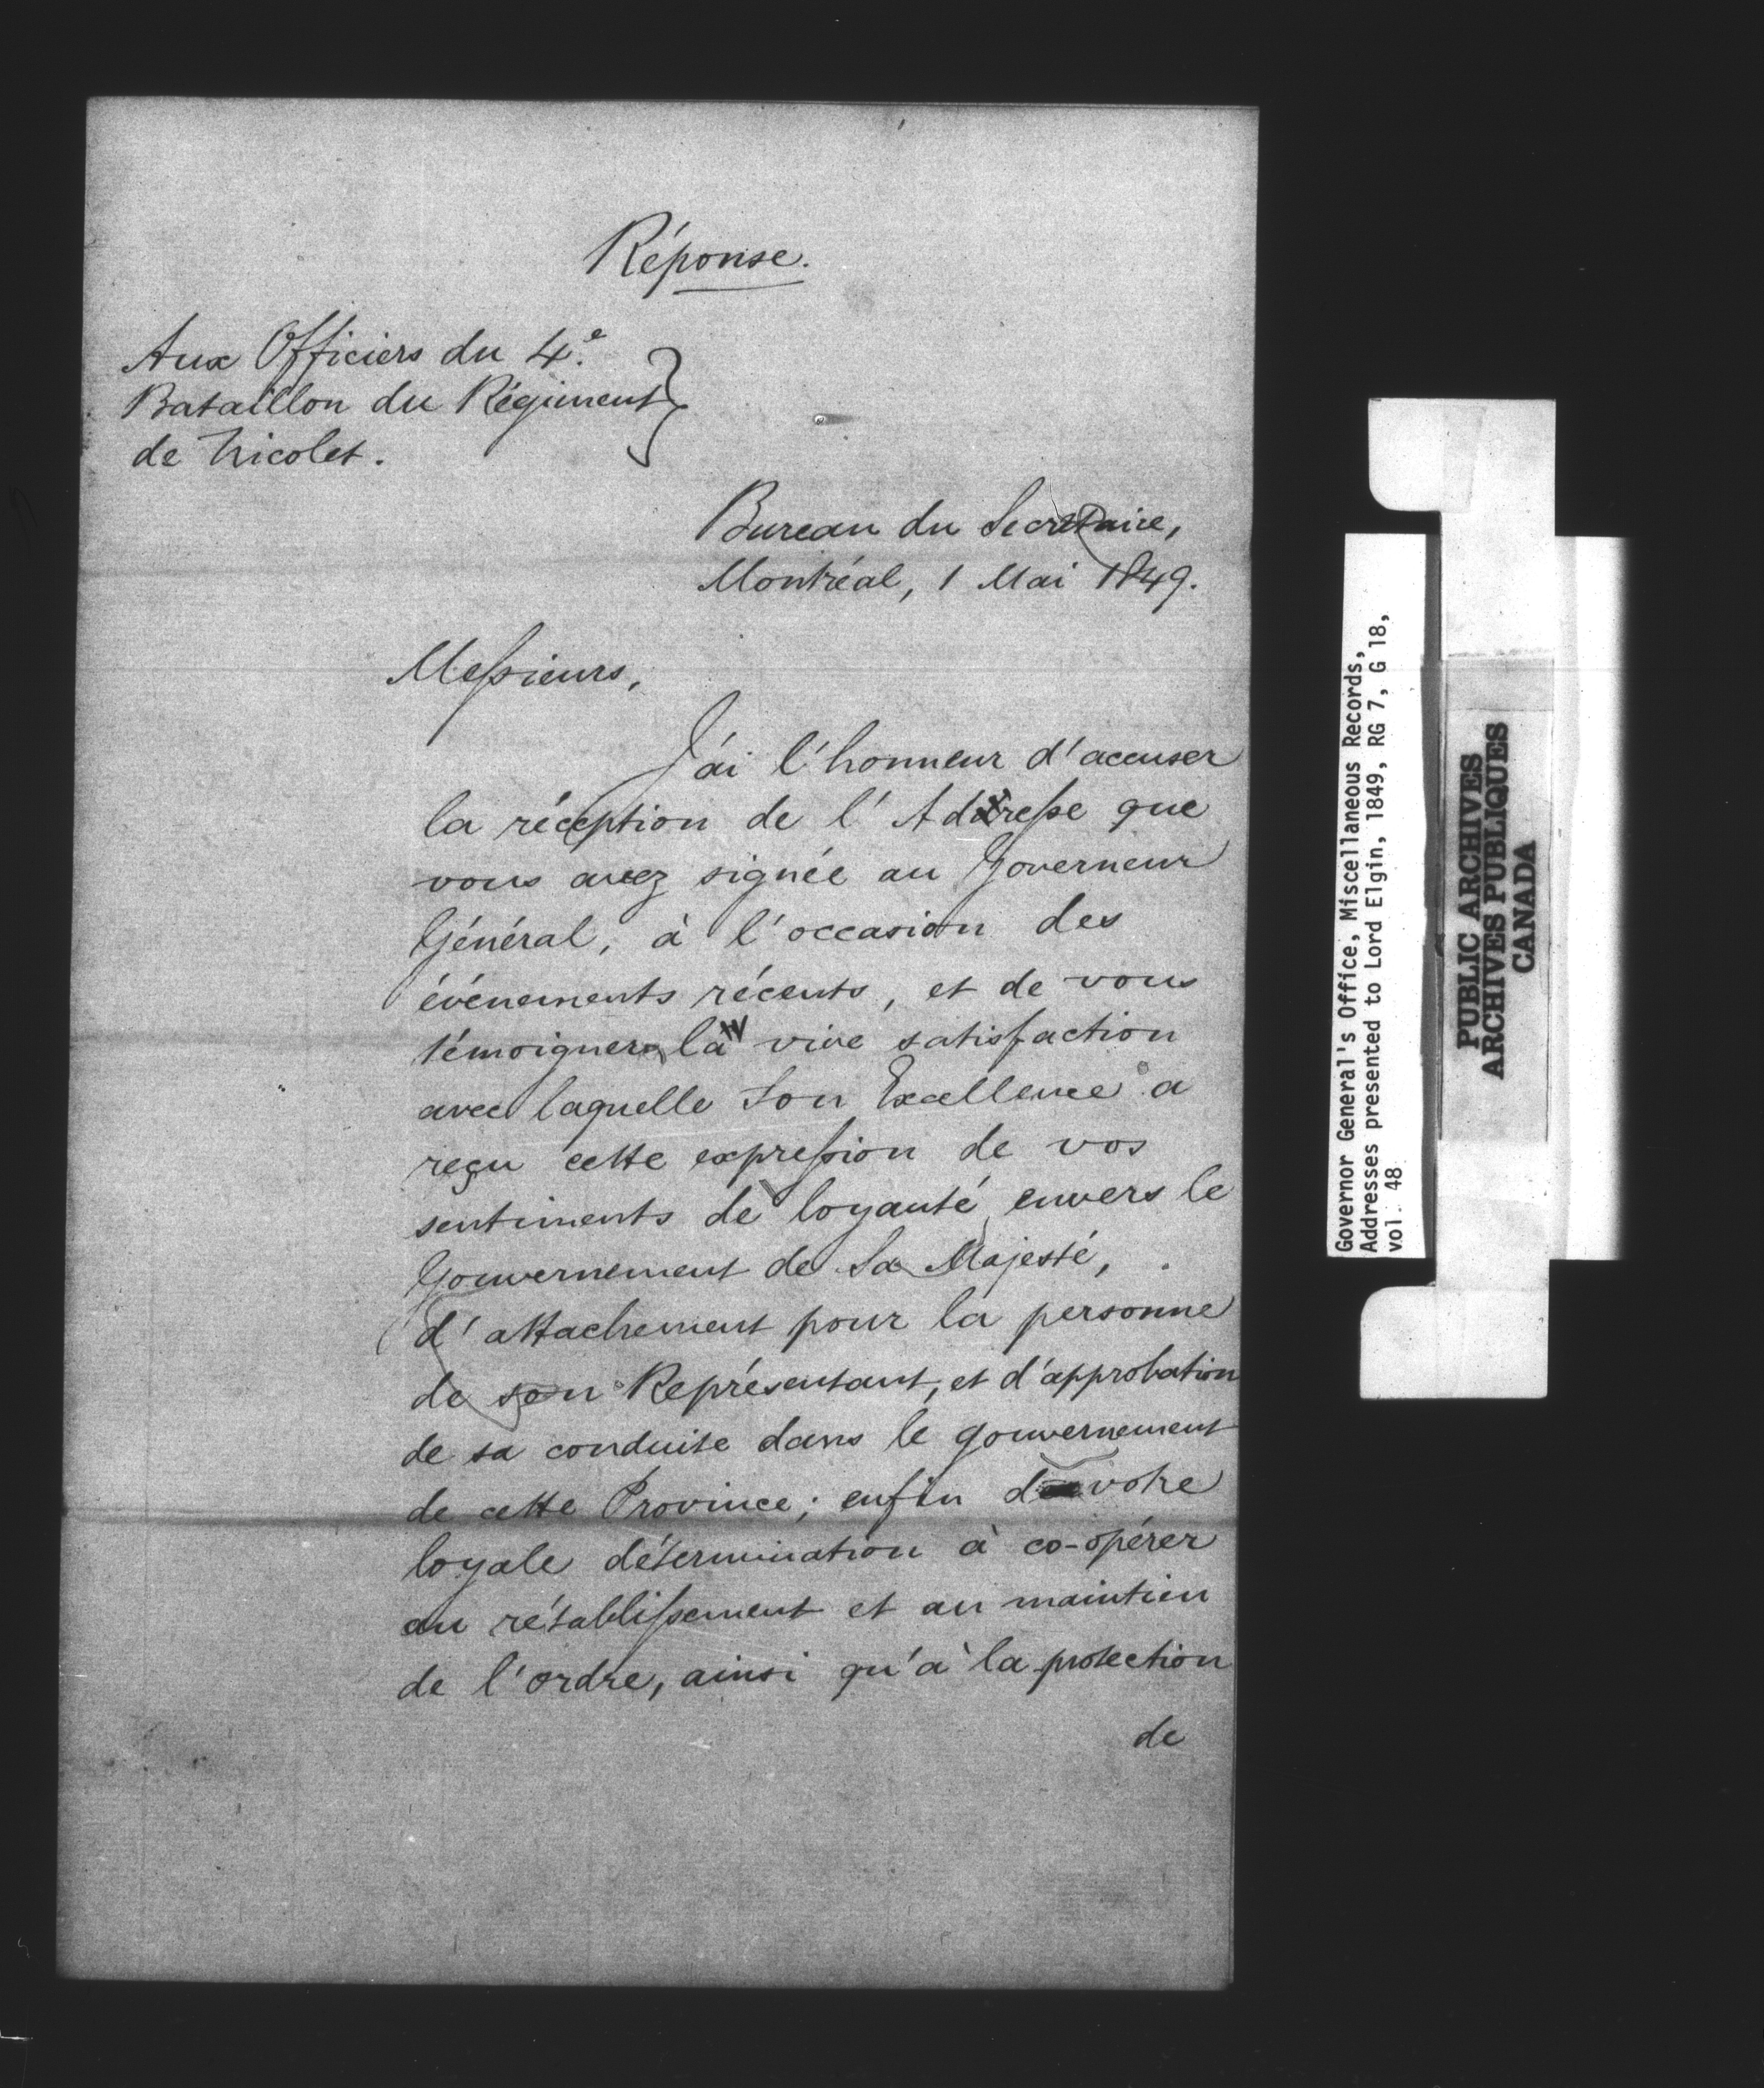 Réponse.
Aux Officiers du 4e.
Bataillon du Régiment
de Nicolet.
Bureau du Secretaire,
Montréal, 1 Mai 1849.
Meſsieurs,
J'ai l'honneur d'accuser
la réception de l'Adreſse que
vous avez signée au Governeur
Général, à l'occasion des
événements récents, et de vous
témoigner la vive satisfaction
avec laquelle Son Excellence a
reçu cette expreſsion de vos
sentiments de loyauté envers le
Gouvernement de Sa Majesté,
d'attachement pour la personne
de son Représentant, et d'approbation
de sa conduite dans le gouvernement
de cette Province; enfin de votre
loyale détermination à co-opérer
au rétabliſsement et au maintien
de l'ordre, ainsi qu'à la protection
de
Governor General's Office, Miscellaneous Records,
Addresses presented to Lord Elgin, 1849, RG 7, G 18,
vol. 48
PUBLIC ARCHIVES
ARCHIVES PUBLIQUES
CANADA